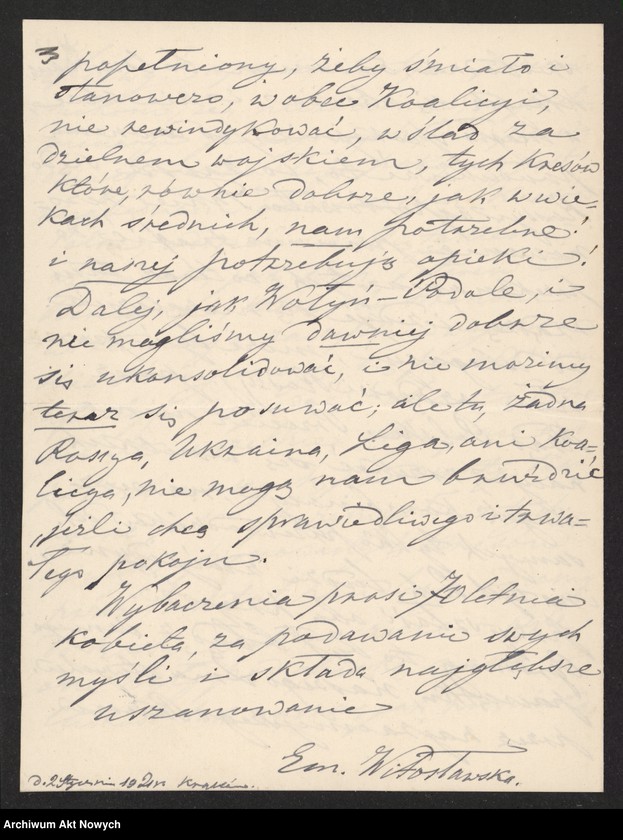 3 popełniony, żeby śmiało i
stanowczo, wobec Koalicyi,
nie rewindykować, w ślad za
dzielnem wojskiem, tych Kresów
które, równie dobrze, jak w wie-
kach średnich, nam potrzebne!
i naszej potrzebują opieki!
Dalej, jak Wołyń – Podole, i
nie mogliśmy dawniej dobrze
się ukonsolidować, i nie możemy
teraz się posuwać; ale tu, żadna
Rosya, Ukraina, Liga, ani Koa-
licya, nie mogą nam bruździć
jeśli chcą sprawiedliwego i trwa-
łego pokoju.
Wybaczenia prosi 70 letnia
kobieta, za podawanie swych
myśli i składa najgłębsze
uszanowanie
Em. Witosławska.
D. 2 Stycznia Kraków.
Archiwum Akt Nowych